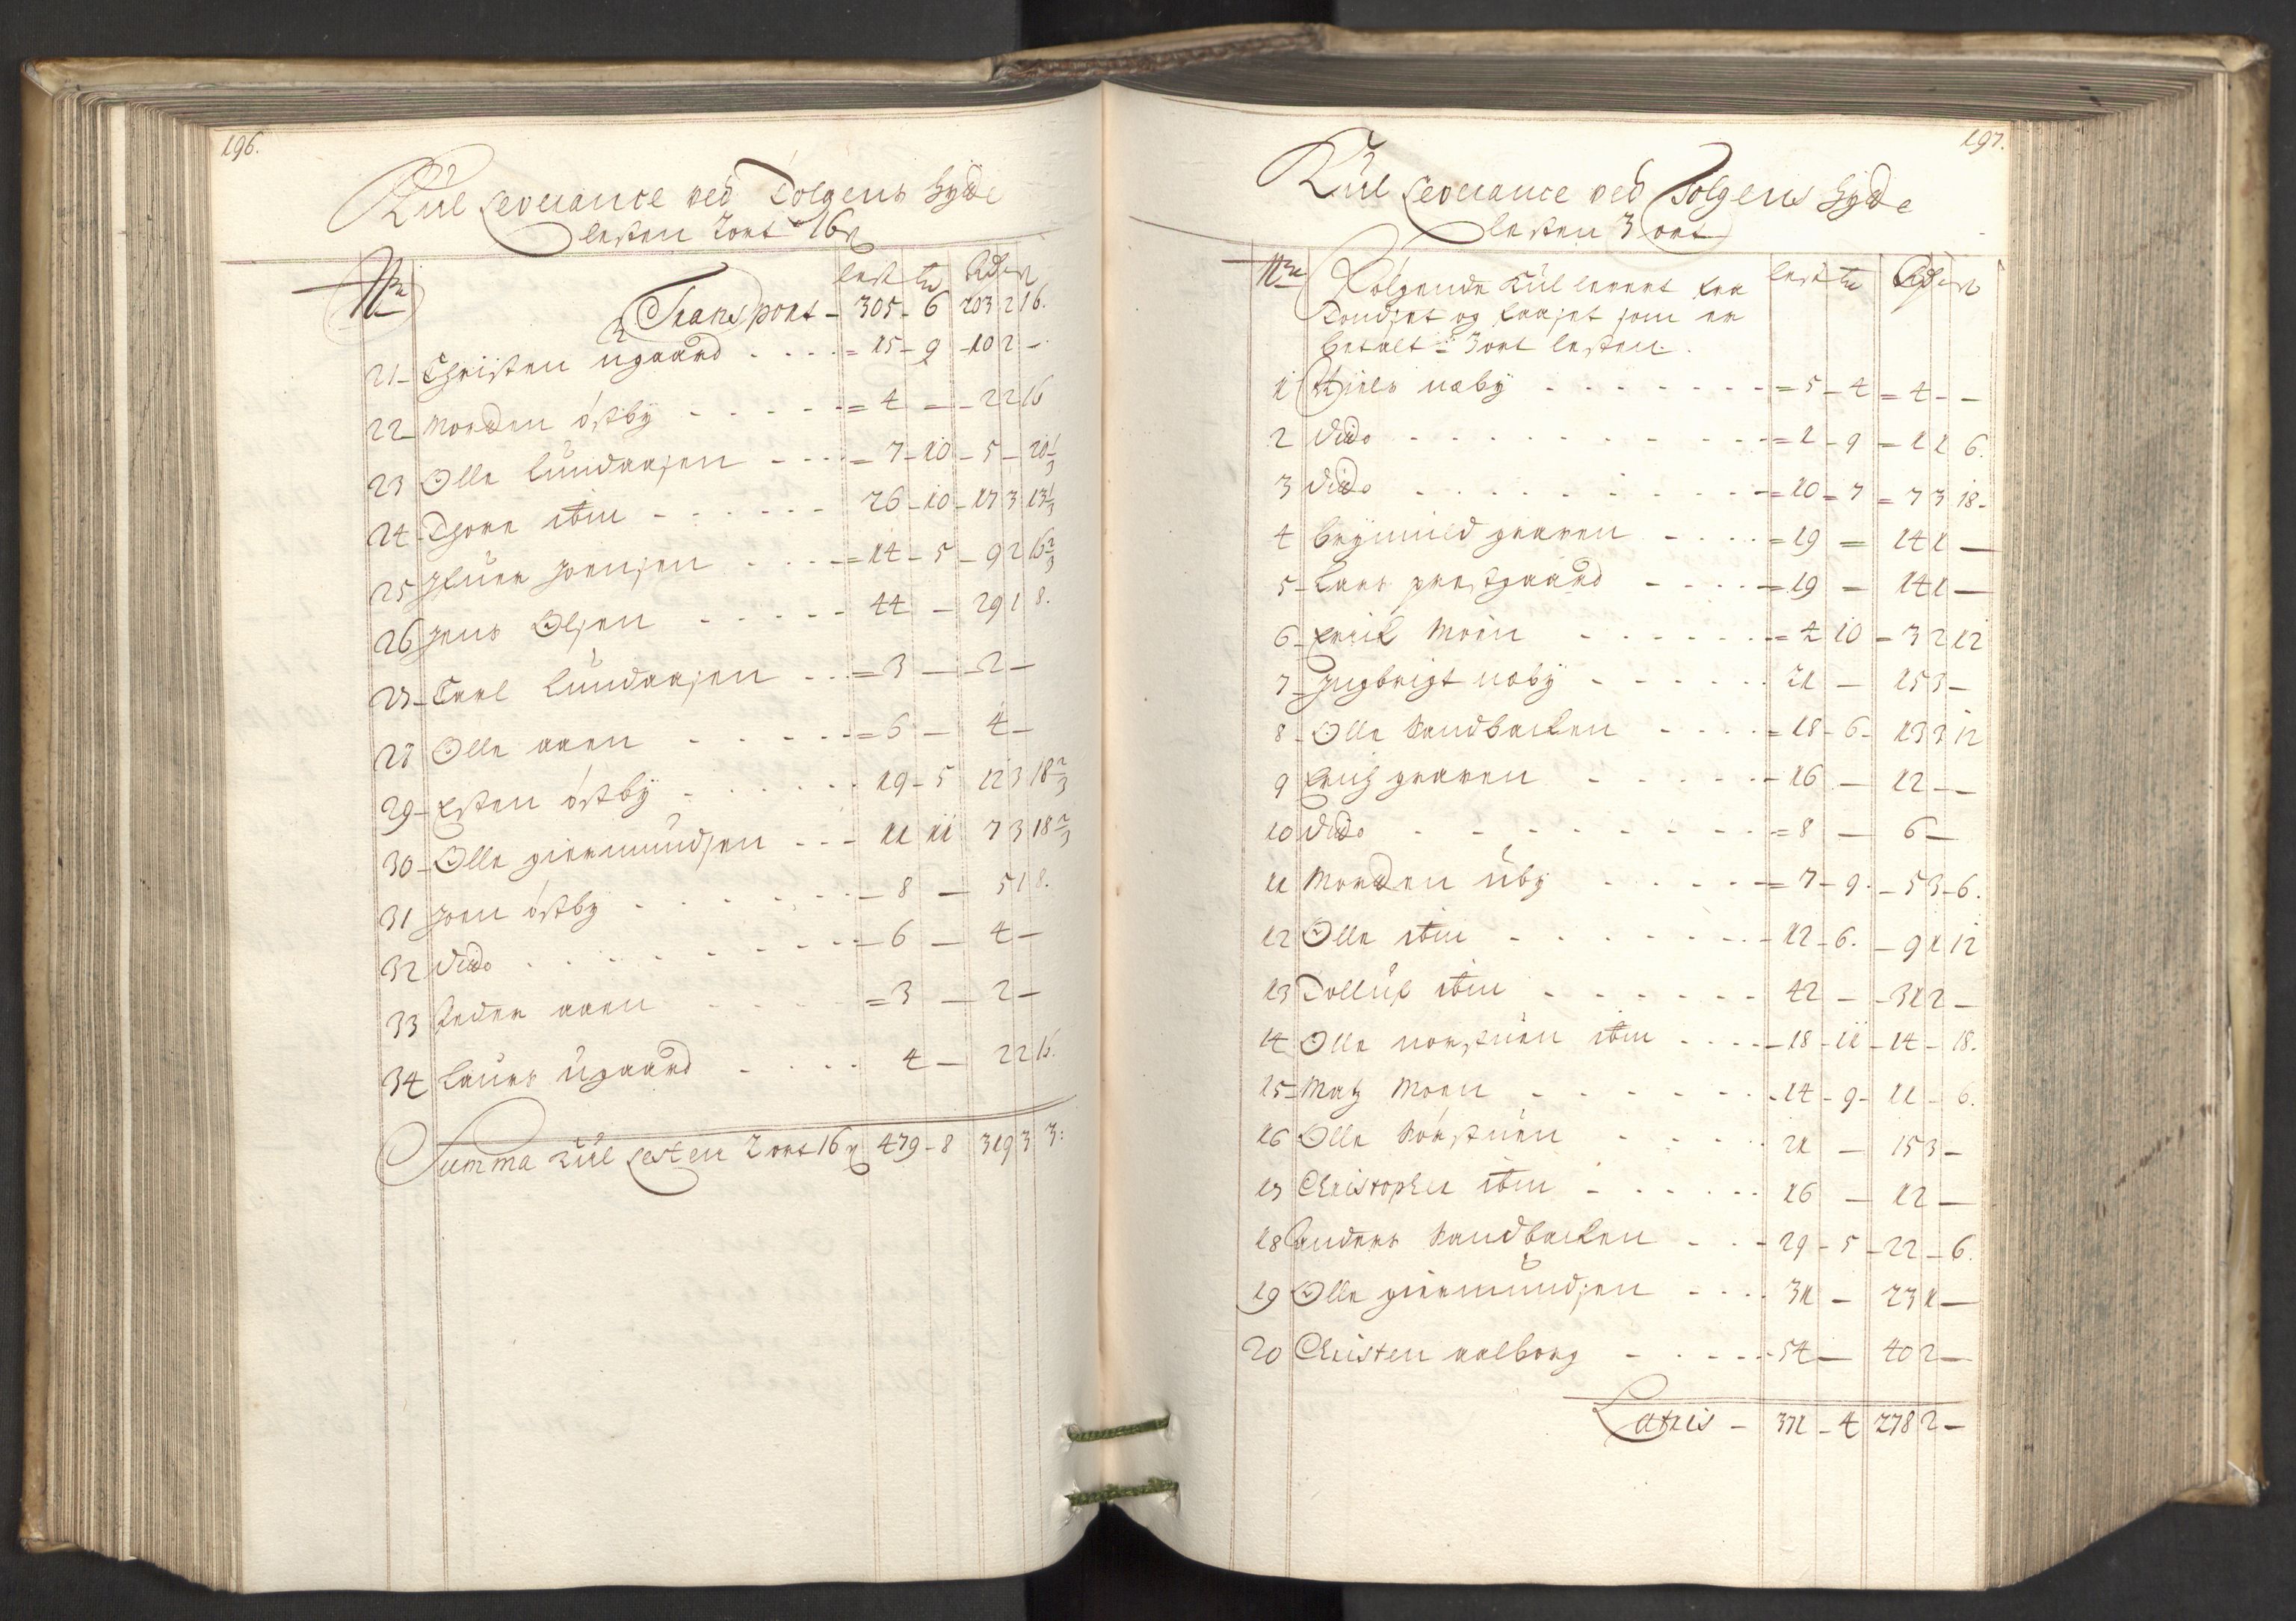 196.
Kul Leverance ved Tolgens hytte
lesten 2 ort 16 s
No lest tr Rdr s
Transport - 305 - 6 203 2 16.
21 - Christen ugaard - - - = 15 - 9 - 10 2 -
22 - Morten østby - - - - = 4 - - 2 2 16
23 Olle lundaasen - - - = 7 - 10 - 5 - 20 1/3
24 - Thore ibm - - - - - 26 - 10 - 17 3 13 1/3
25 Siuer Joensen - - - = 14 - 5 - 9 2 16 2/3
26 Jens Olsen - - - - - 44 - 29 1 8.
27 - Carl lundaasen - - = 3 - - 2 -
28 Olle aaen - - - - - = 6 - 4 -
29 - Esten østby - - - - - 19 - 5 12 3 18 2/3
30 - Olle giermundsen - - - 11 11 7 3 18 2/3
31 Joen østby - - - - - - 8 - 5 1 8.
32 dito - - - - - - - 6 - 4 -
33 Peder aaen - - - - = 3 - 2 -
34 Laurs ugaard - - - - 4 - 2 2 16.
Summa kul Lesten 2 ort 16 s 479 - 8 319 3 3:
197.
Kul Leverance ved Tolgens hytte
lesten 3 ort
No Følgende kul levert fra lest tr Rdr s
Tondset og faaset som er
betalt = 3 ort lesten.
1 Niels næby - - - - - - - = 5 - 4 = 4 - -
2 dito - - - - - - - - = 1 - 9 = 1 1 6.
3 dito - - - - - - - - = 10 = 7 = 7 3 18 -
4 brynnild graven - - - = 19 = 14 1 -
5 - Lars prestgaard - - - - = 19 = 14 1 -
6 - Erik Moen - - - - - - = 4 10 = 3 2 12
7 - Ingbrigt næby - - - - - 21 - 15 3 -
8 - Olle sandbacken - - - - = 18 - 6 - 13 3 12
9 Erich graven - - - - - - 16 - 12 - -
10 dito - - - - - - - - = 8 - 6 -
11 Morten uby - - - - - = 7 - 9. - 5 3 - 6.
12 Olle ibm - - - - - - - 12 - 6. - 9 1 12
13 Tolluf ibm - - - - - - 42 - - 31 2 -
14 Olle norstuen ibm - - - - 18 - 11 - 14 - 18.
15 - Matz Moen - - - - - - 14 - 9 - 11 - 6.
16 Olle sørstuen - - - - - 21 - 15 3 -
17 Christopher ibm - - - - - 16 - 12 -
18 anders sandbacken - - - 29 - 5 - 22 - 6.
19 Olle giermundsen - - - - 31 - 23 1 -
20 Christen aalborg - - - - - 54 - 40 2 -
Latris - 371 - 4 278 2 -